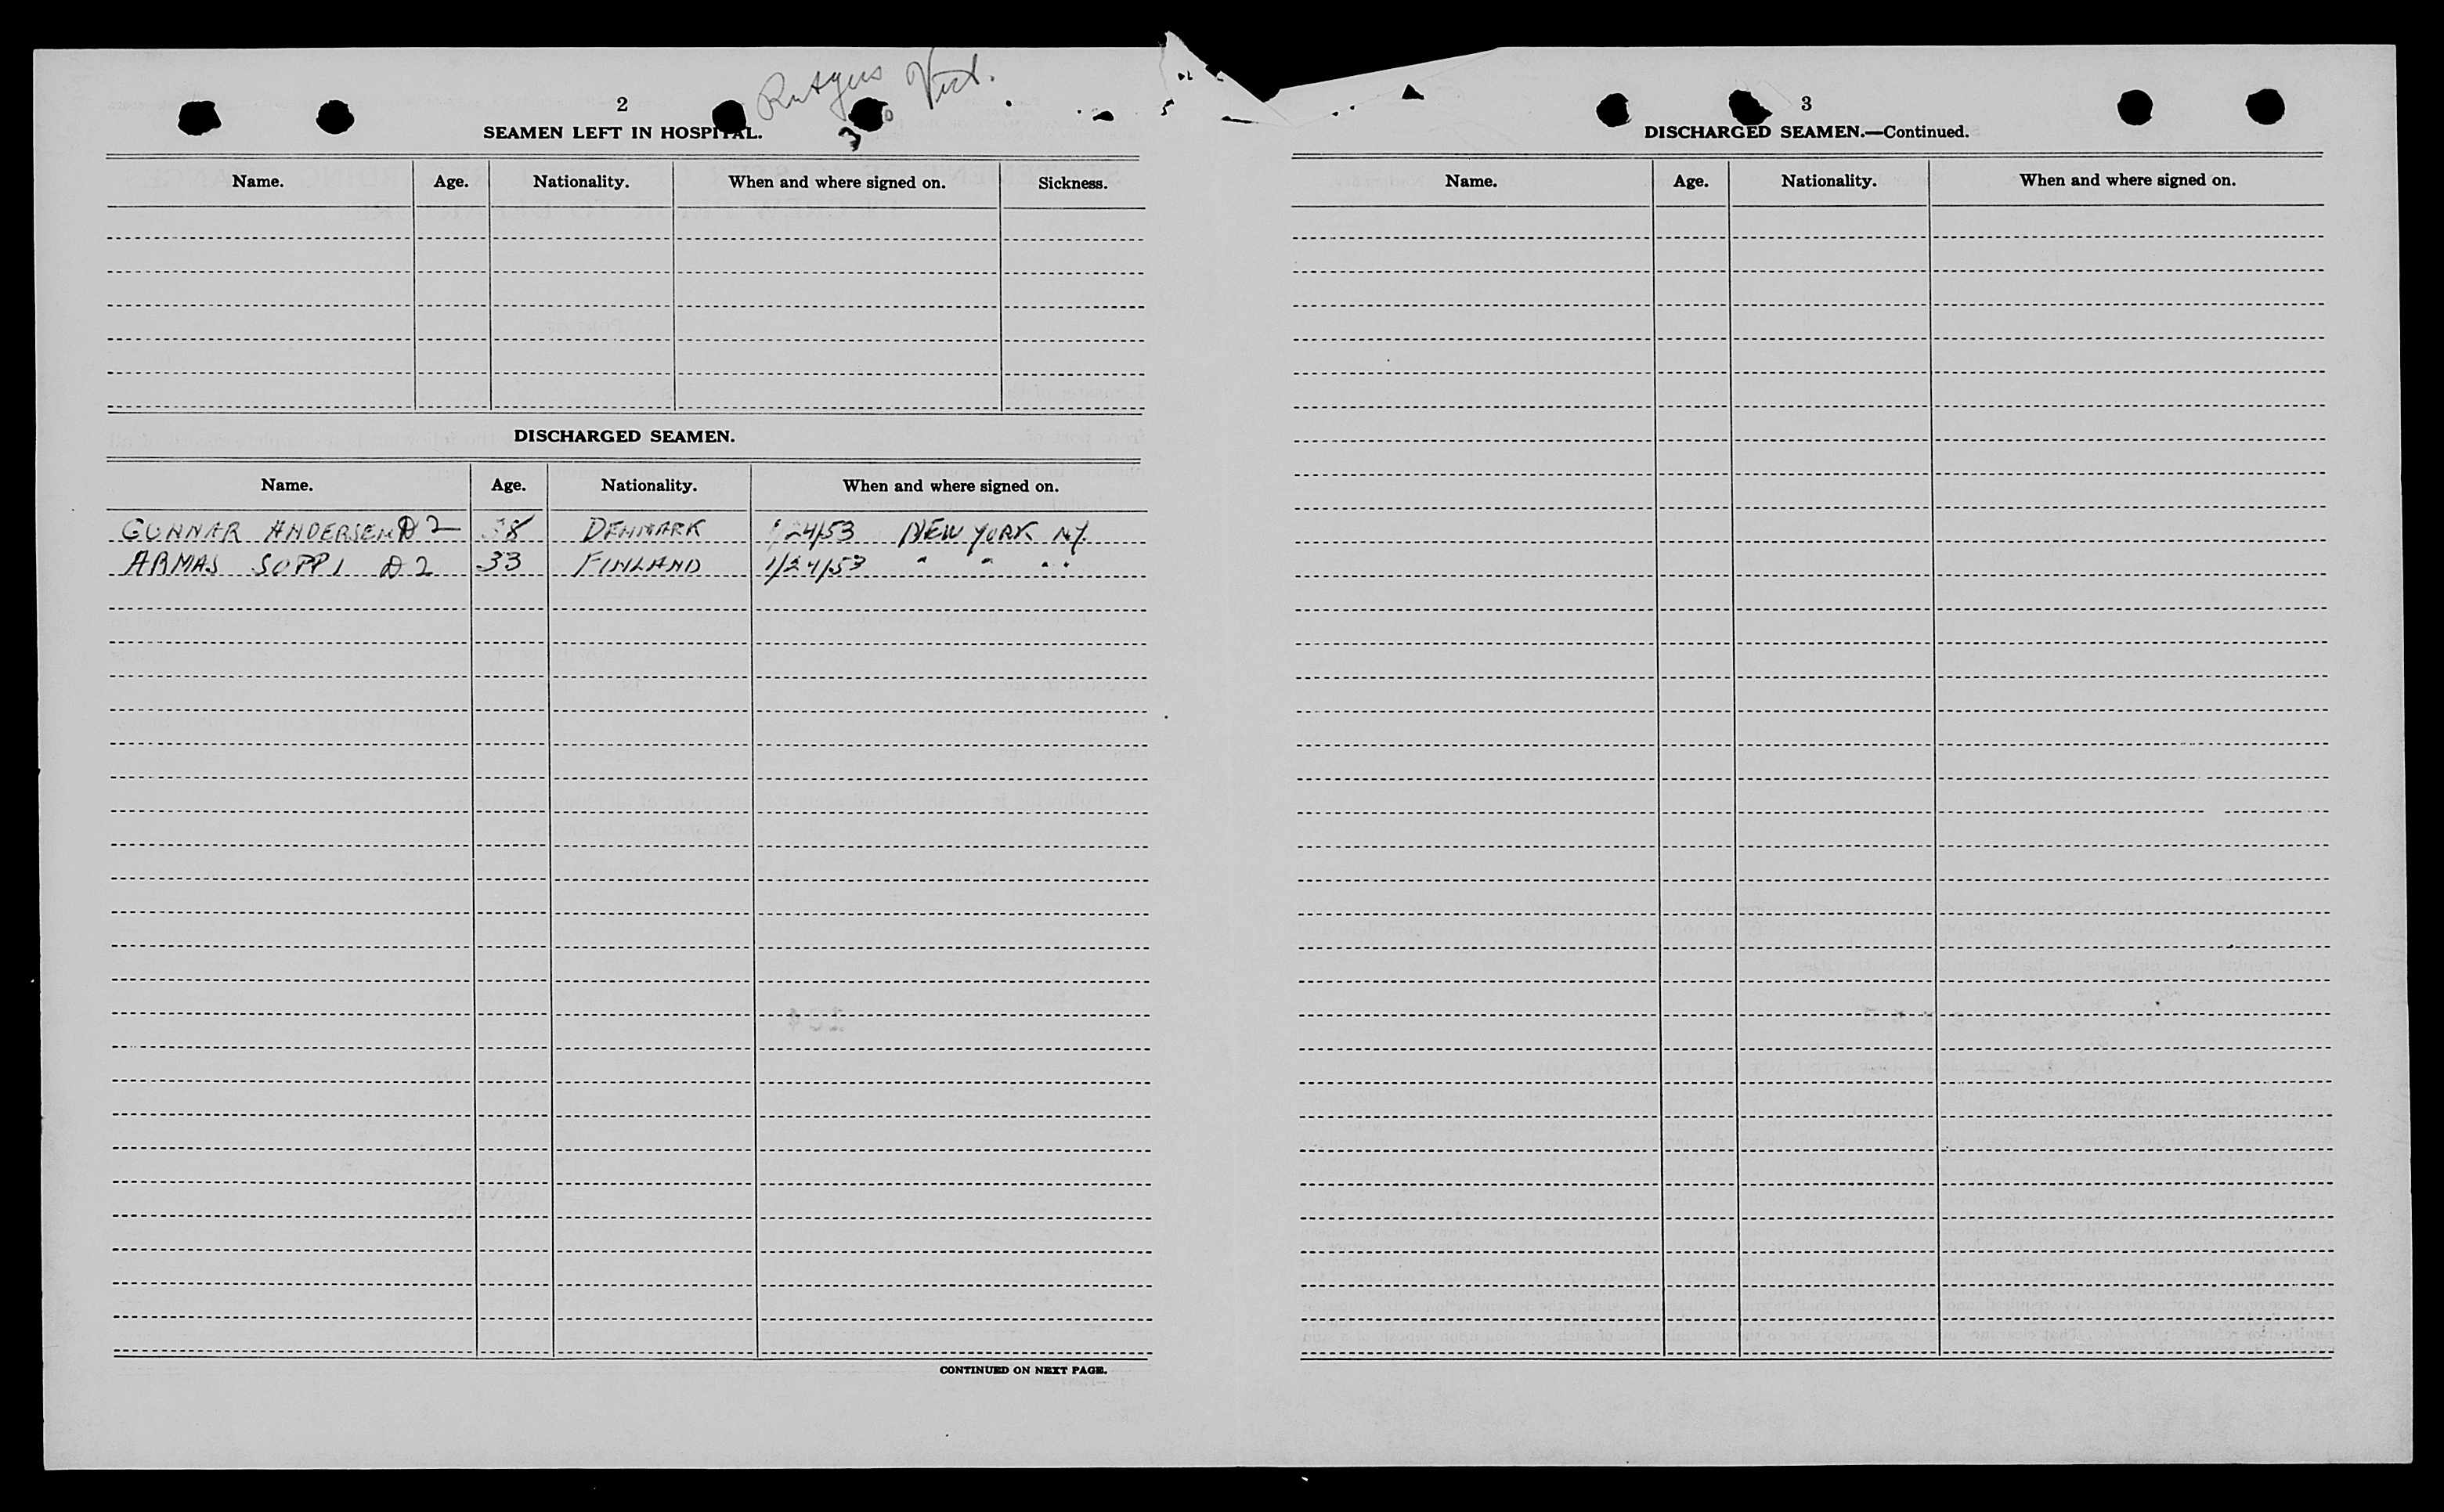 Rutgers Vict.
2
SEAMEN LEFT IN HOSPITAL.
Name. Age. Nationality. When and where signed on. Sickness.
DISCHARGED SEAMEN.
Name. Age. Nationality. When and where signed on.
GUNNAR ANDERSEN D2 38 DENMARK 1/24/53 NEW YORK NY.
ARMAS SOPPI D2 33 FINLAND 1/24/53 " " "
CONTINUED ON NEXT PAGE.
3
DISCHARGED SEAMEN.—Continued.
Name. Age. Nationality. When and where signed on.